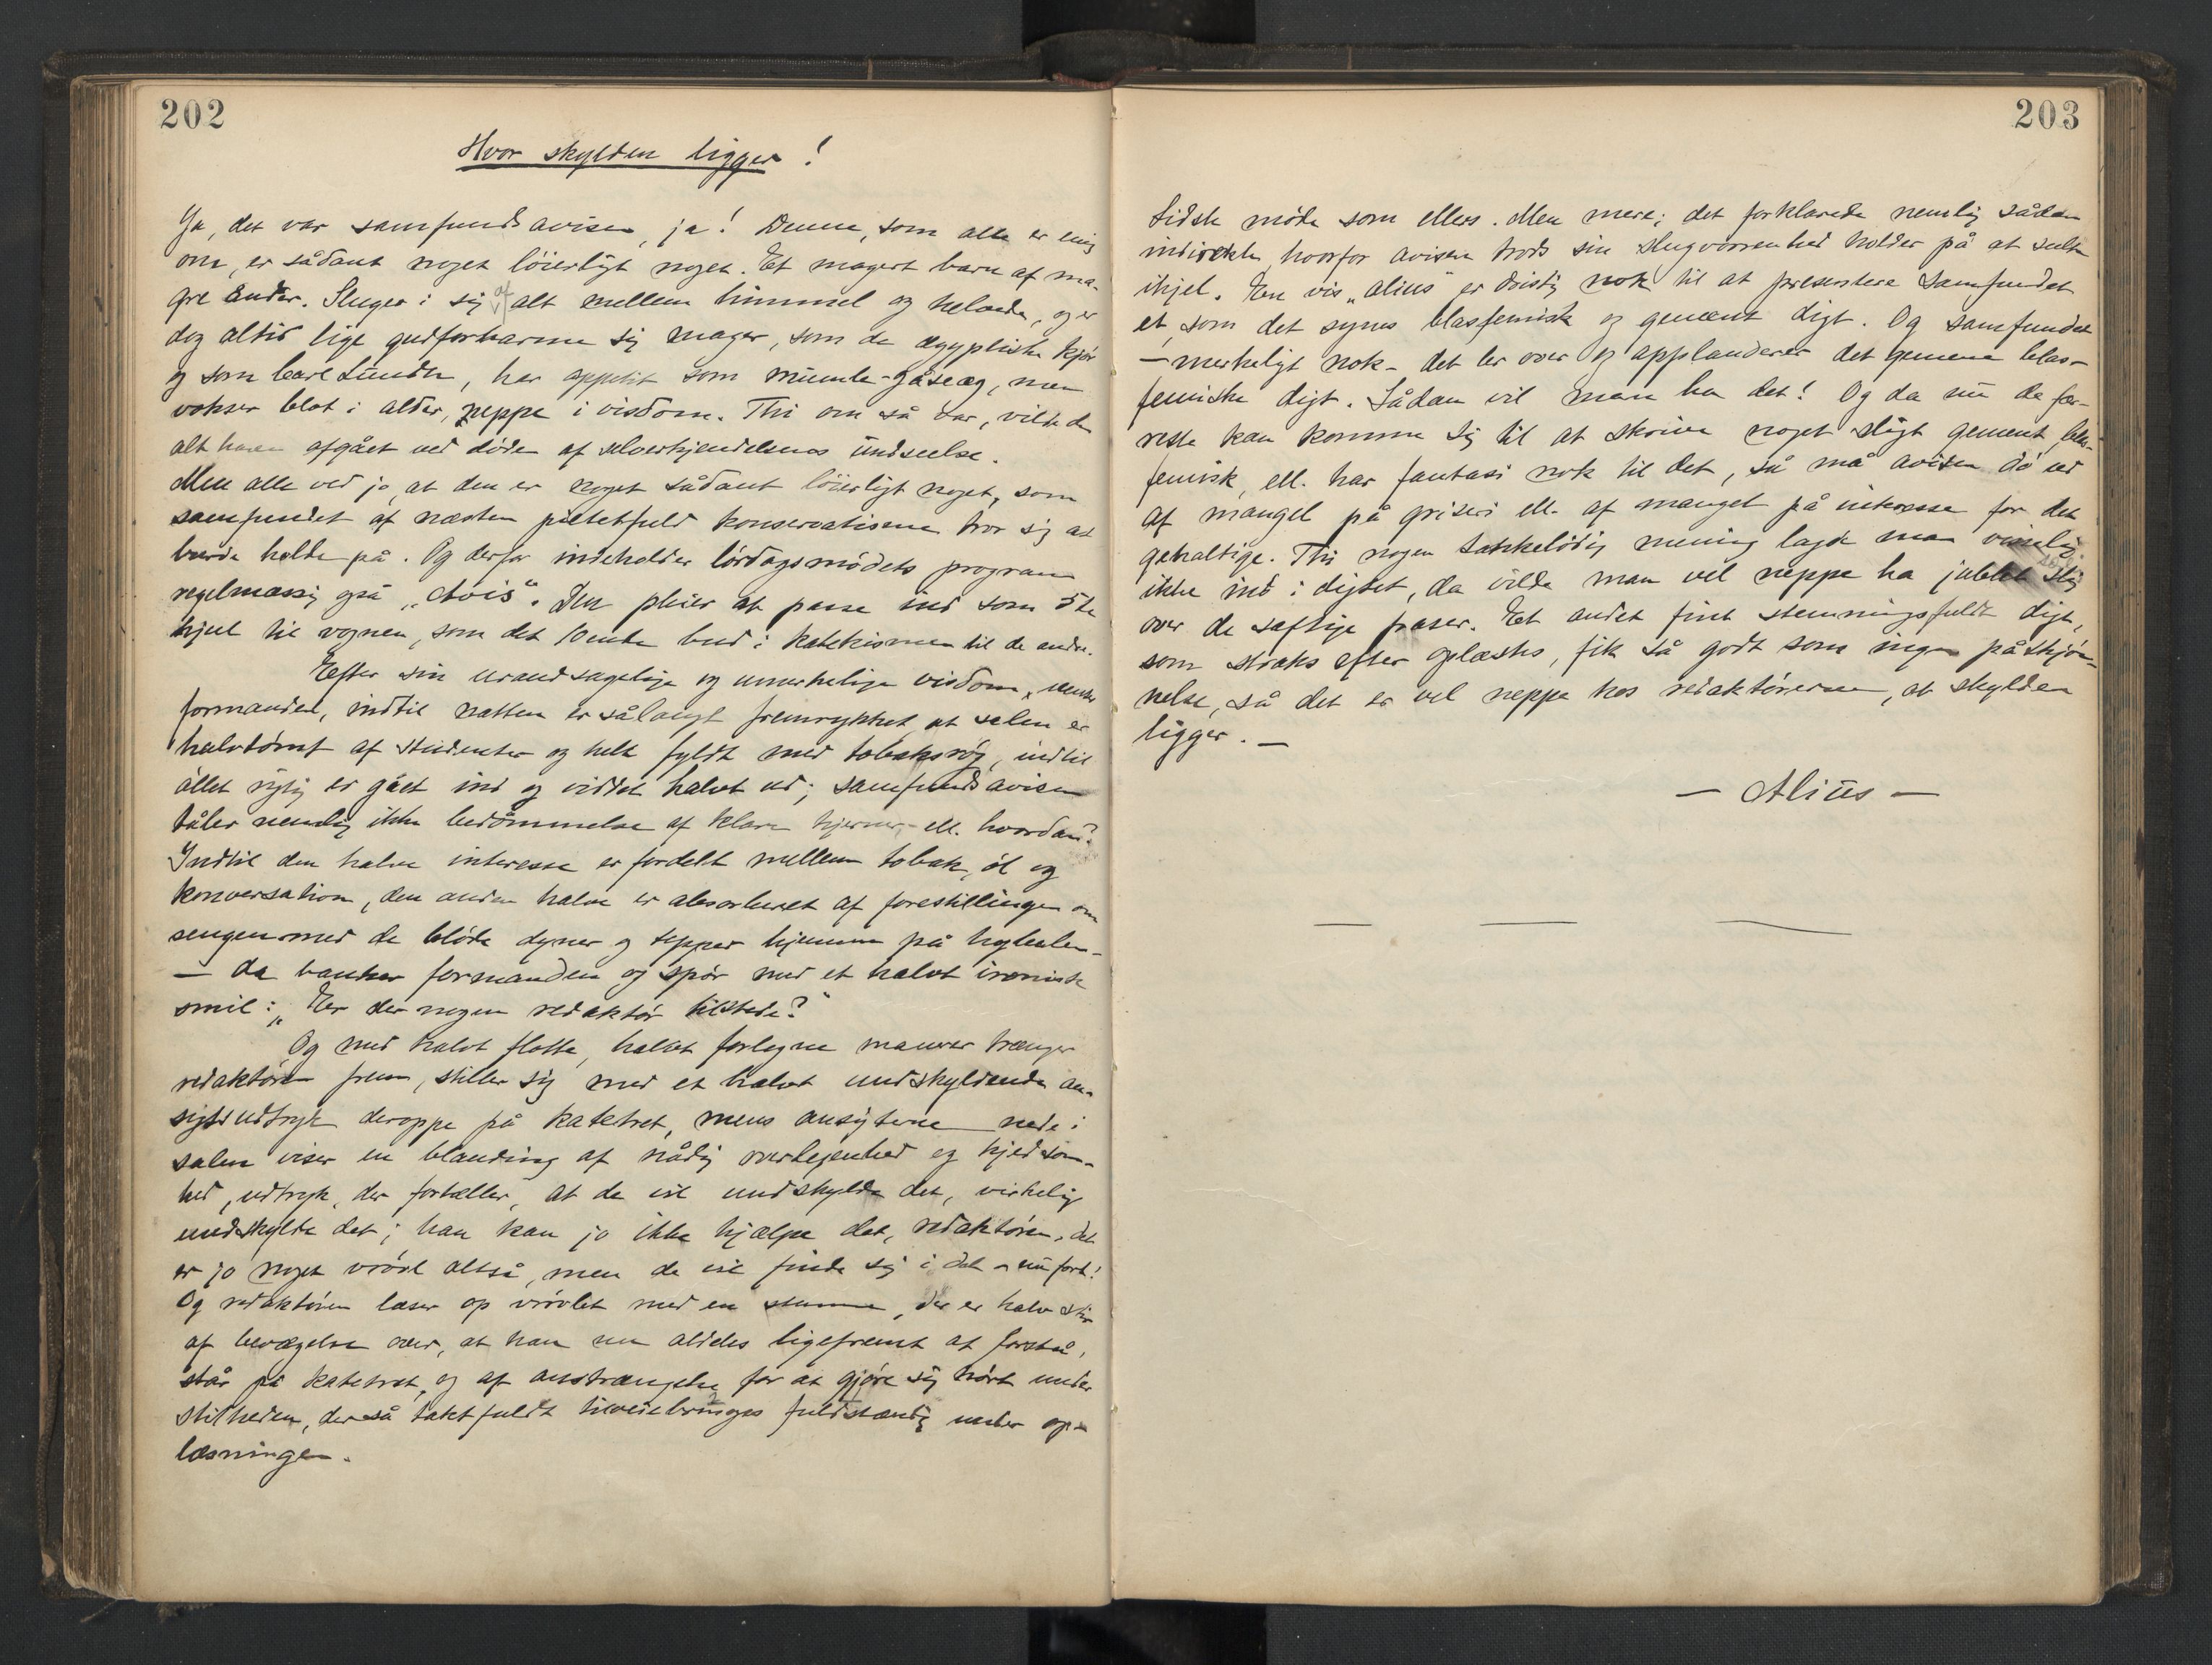 202
Hvor skylden ligger!
Ja, det var samfundsavisen, ja! Denne, som alle er enig
om, er sådant noget löierligt noget. Et magert barn af ma-
gre ånder. Sluger i sig af alt mellem himmel og helvede, og er
dog altid lige gudforbarme sig mager, som de ægyptiske kjør
og som Carl Lunde, har appetit som mumle-gåseæg, men
vokser blot i alder, neppe i visdom. Thi om så var, vilde den
alt have afgået ved døden af selverkjendelsens undseelse.
Men alle ved jo, at den er noget sådant löierligt noget, som
samfundet af næsten pietetfuld konservatisme tror sig at
burde holde på. Og derfor indeholder lørdagsmødets program
regelmæssig også „Avis“. Den pleier at passe ind som 5te
hjul til vognen, som det 10ende bud i katekismen til de andre.
Efter sin urandsagelige og umerkelige visdom venter
formanden, indtil natten er sålangt fremrykket at salen er
halvtømt af studenter og helt fyldt med tobaksrøg, indtil
øllet rigtig er gået ind og viddet halvt ud; samfundsavisen
tåler nemlig ikke bedømmelse af klare hjerner, ell. hvordan?
Indtil den halve interesse er fordelt mellem tobak, øl og
konversation, den anden halve er absorberet af forestillingen om
sengen med de bløde dyner og tepper hjemme på hybelen-
— da banker formanden og spør med et halvt ironisk
smil: „Er der nogen redaktør tilstede?“
Og med halvt flotte, halvt forlegne manerer trænger
redaktøren frem, stiller sig med et halvt undskyldende an-
sigtsudtryk deroppe på katetret, mens ansigterne nede i
salen viser en blanding af nådig overlegenhed og kjedsom-
hed, udtryk, der fortæller, at de vil undskylde det, virkelig
undskylde det; han kan jo ikke hjælpe det, redaktøren, det
er jo noget vrøvl altså, men de vil finde sig i det - nu fort!
Og redaktøren læser op vrøvlet med en stemme, der er halv
af bevægelse over, at han nu aldeles ligefremt at forstå,
står på katetret, og af anstrængelse for at gjøre sig hørt under
stilheden, der så taktfuldt tilveiebringes fuldstændig under op-
læsningen.
203
Sidste møde som ellers. Men mere; det forklarede nemlig sådan
indirekte, hvorfor avisen trods sin slugvorrenhed holder på at sulte
ihjel. En vis „Alius“ er dristig nok til at presentere Samfundet
et, som det synes blasfemisk og gement digt. Og samfundet
— merkeligt nok - det ler over og applauderer det gemene blas-
femiske digt. Sådan vil man ha det! Og da nu de fær-
reste kan komme sig til at skrive noget sligt gement, blas-
femisk, ell. har fantasi nok til det, så må avisen dø ud
af mangel på griseri ell. af mangel på interesse for det
gehaltige. Thi nogen dybkelødig mening lagde man
ikke ind i digtet, da vilde man vel neppe ha jublet slig
over de saftige fraser. Et andet fint stemningsfuldt digt,
som straks efter oplæstes, fik så godt som ingen påskjøn-
nelse, så det er vel neppe hos redaktørerne, at skylden
ligger. —
— Alius —